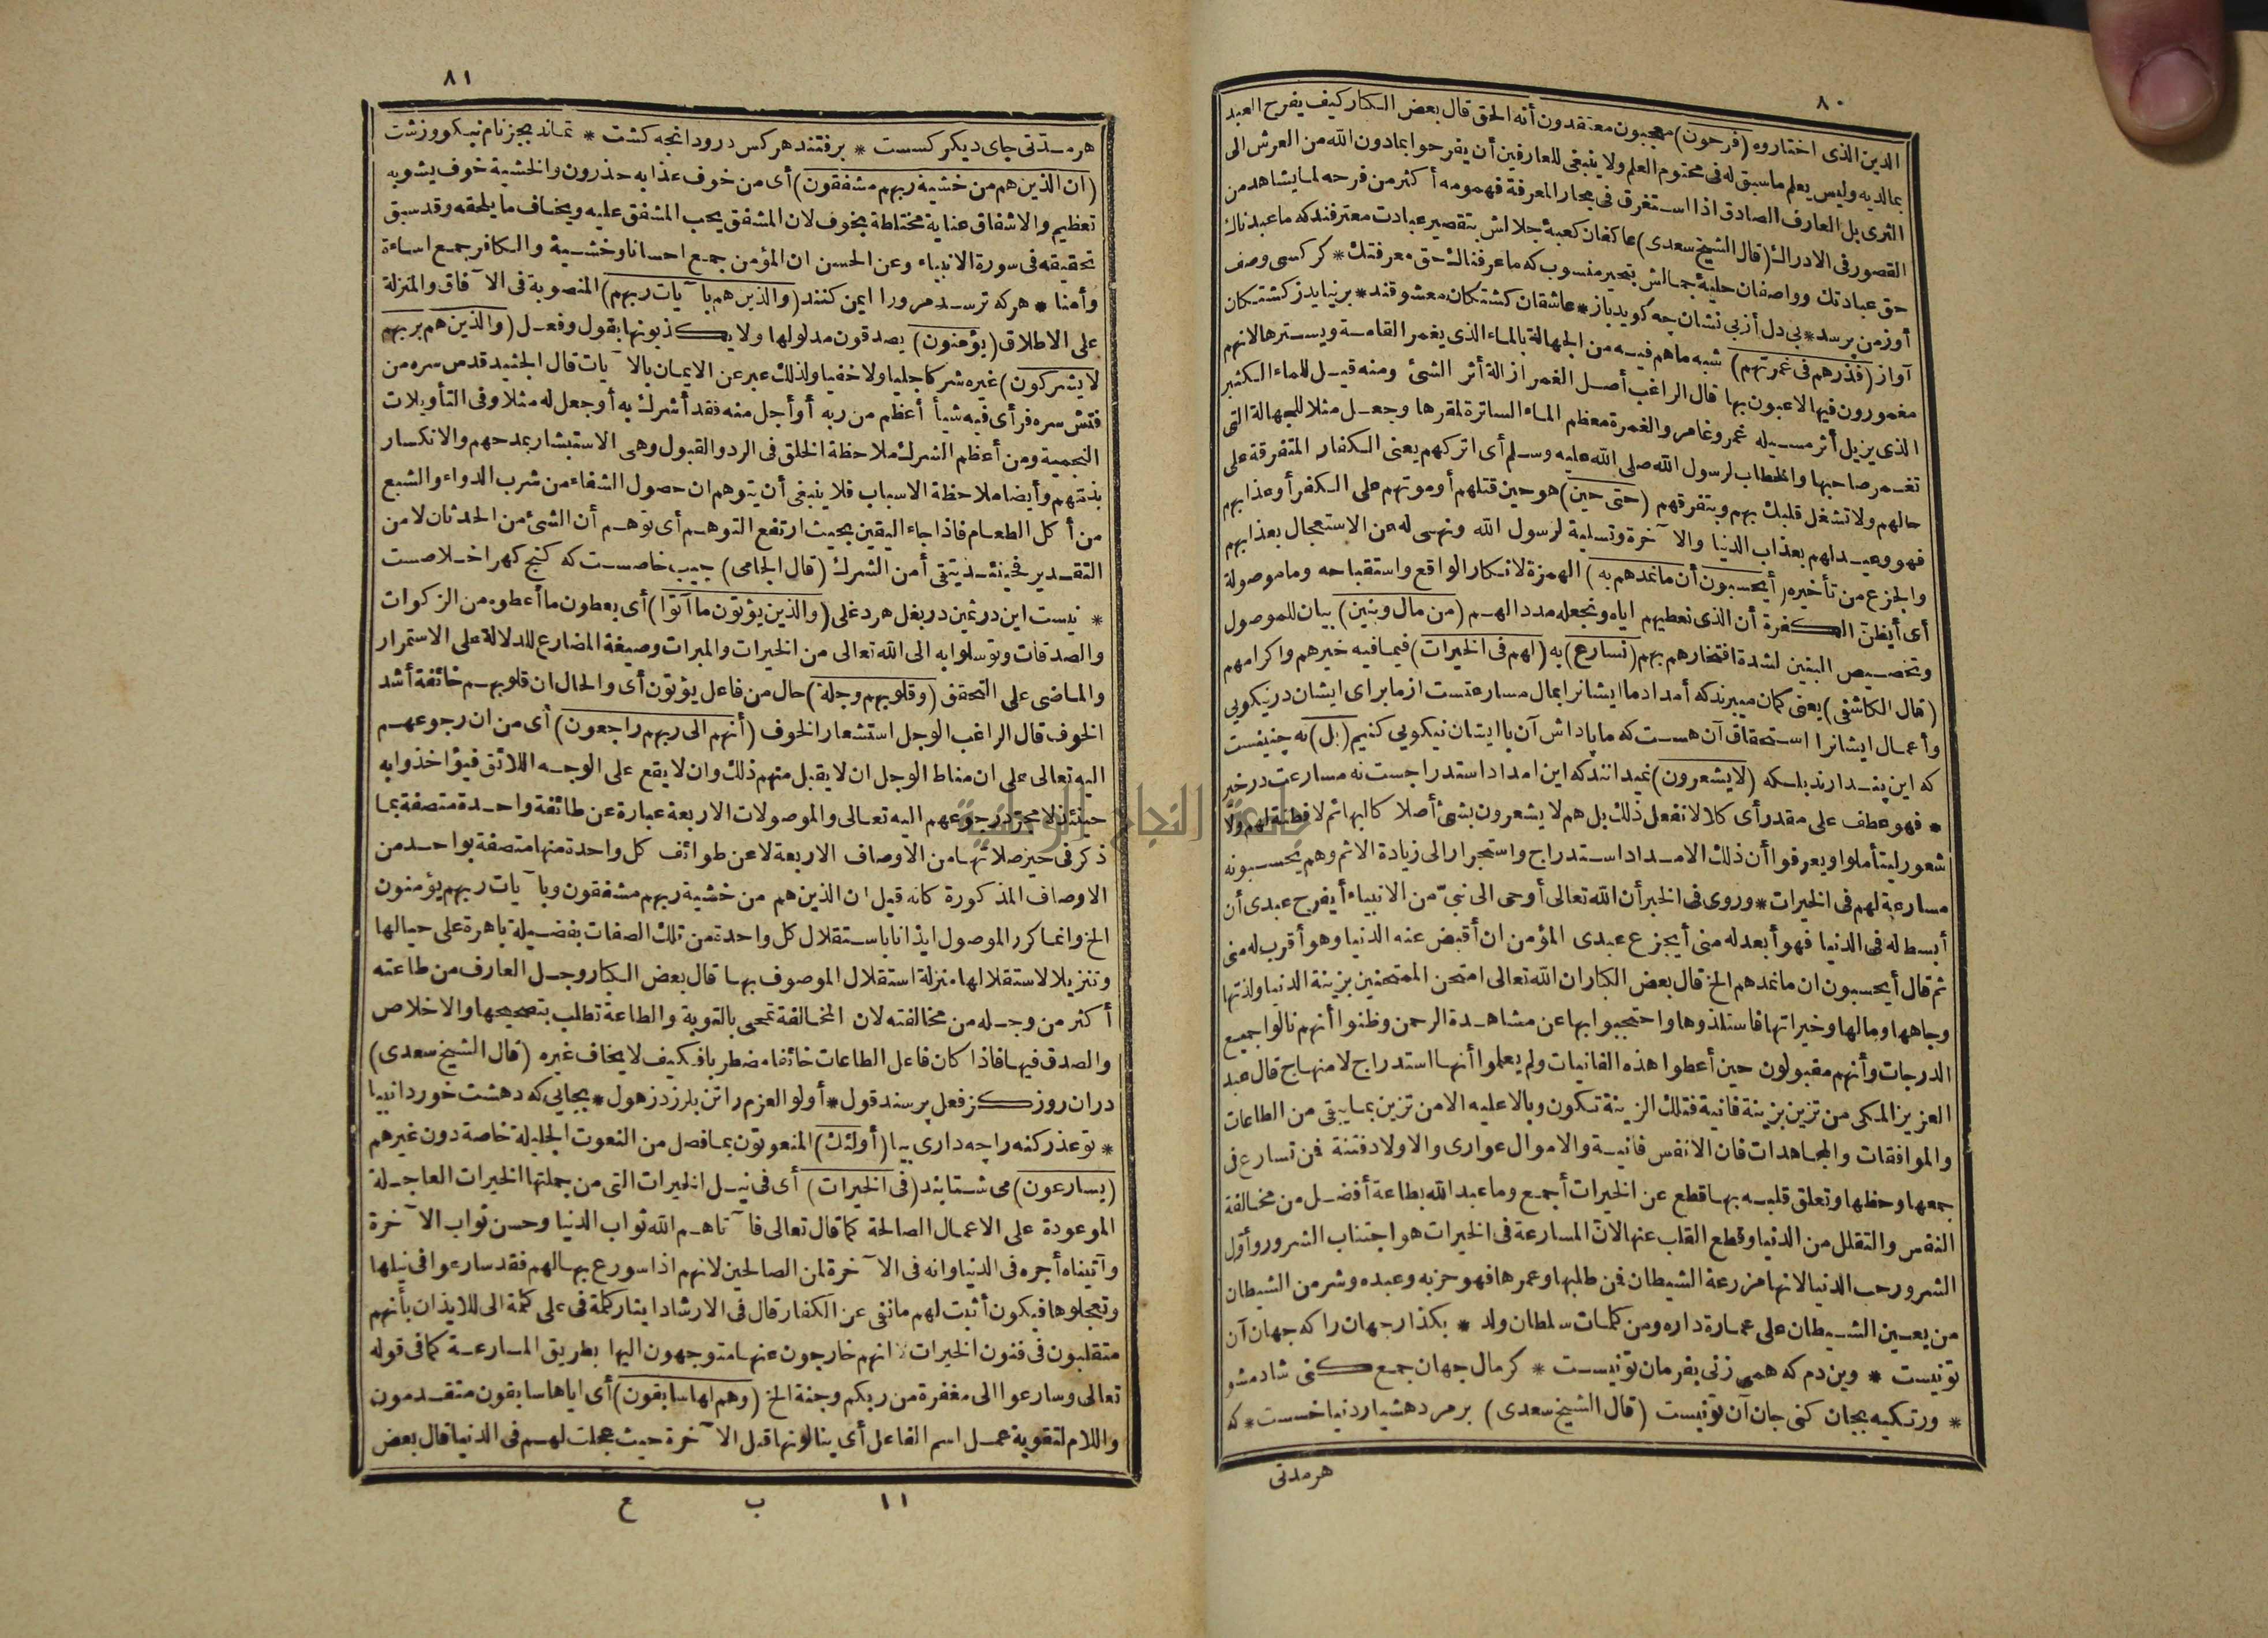 ٨٠
الدين الذى اختاروه (فرحون) معجبون معتقدون أنه الحق قال بعض الكبار كيف يفرح العبد
بمالديه وليس يعلم ماسبق له فى محتوم العلم ولا ينبغى للعارفين أن يفرحوا بمادون الله من العرش الى
الثرى بل العارف الصادق اذا استغرق فى بحار المعرفة فهمومه أكثر من فرحه لمايشاهد من
القصور فى الادراك (قال الشيخ سعدى) عاكفان كعبهٔ جلالش بتقصير عبادت معترفند كه ماعبدناك
حق عبادتك وواصفان حليهٔ جمالش بتحير منسوب كه ماعرفناك حق معرفتك * كر كسى وصف
أوزمن پرسد * بى دل أزبى نشان چه كويد باز * عاشقان كشتكان معشوقند * برنيايد ز كشتكان
آواز (فذرهم فى غمرتهم) شبه ماهم فيه من الجهالة بالماء الذى يغمر القامة ويسترها لانهم
مغمورون فيها لاعبون بها قال الراغب أصل الغمر ازالة أثر الشئ ومنه قيل للماء الكثير
الذى يزيل أثر مسيله غمر وغامر والغمرة معظم الماء الساترة لمقرها وجعل مثلا للجهالة التى
تغمر صاحبها والخطاب لرسول الله صلى الله عليه وسلم أى اتركهم يعنى الكفار المتفرقة على
حالهم ولا تشغل قلبك بهم وبتفرقهم (حتى حين) هو حين قتلهم أو موتهم على الكفر أو عذابهم
فهو وعيد لهم بعذاب الدنيا والآخرة وتسلية لرسول الله ونهى له عن الاستعجال بعذابهم
والجزع من تأخيره (أيحسبون أن مانمدهم به) الهمزة لانكار الواقع واستقباحه وما موصولة
أى أيظن الكفرة أن الذى نعطيهم اياه ونجعله مددا لهم (من مال وبنين) بيان للموصول
وتخصيص البنين لشدة افتخارهم بهم (نسارع) به (لهم فى الخيرات) فيمافيه خيرهم واكرامهم
(قال الكاشفى) يعنى كمان ميبرند كه أمداد ما ايشانرا بمال مسارعتست از ما براى ايشان درنيكويى
وأعمال ايشانرا استحقاق آن هست كه ما پاداش آن با ايشان نيكويى كنيم (بل) نه چنينست
كه اين پندارند بلكه (لايشعرون) نميدانند كه اين امداد استدراجست نه مسارعت درخير
* فهو عطف على مقدر أى كلا لانفعل ذلك بل هم لا يشعرون بشئ أصلا كالبهائم لا فطنة لهم ولا
شعور ليتأملوا ويعرفوا أن ذلك الامداد استدراج واستجرار الى زيادة الاثم وهم يحسبونه
مسارعة لهم فى الخيرات * وروى فى الخبر أن الله تعالى أوحى الى نبىّ من الانبياء أيفرح عبدى أن
أبسط له فى الدنيا فهو أبعد له منى أيجزع عبدى المؤمن ان أقبض عنه الدنيا وهو أقرب له منى
ثم قال أيحسبون ان مانمدهم الخ قال بعض الكبار ان الله تعالى امتحن الممتحنين بزينة الدنيا ولذتها
وجاهها ومالها وخيراتها فاستلذوها واحتجبوا بها عن مشاهدة الرحمن وظنوا أنهم نالوا جميع
الدرجات وأنهم مقبولون حين أعطوا هذه الفانيات ولم يعلموا أنها استدراج لا منهاج قال عبد
العزيز المكى من تزين بزينة فانية فتلك الزينة تكون وبالا عليه الا من تزين بمايبقى من الطاعات
والموافقات والمجاهدات فان الانفس فانية والاموال عوارى والاولاد فتنة فمن تسارع فى
جمعها وحظها وتعلق قلبه بها قطع عن الخيرات أجمع وما عبد الله بطاعة أفضل من مخالفة
النفس والتقلل من الدنيا وقطع القلب عنها لانّ المسارعة فى الخيرات هو اجتناب الشرور وأوّل
الشرور حب الدنيا لانها مزرعة الشيطان فمن طلبها وعمرها فهو حزبه وعبده وشر من الشيطان
من يعين الشيطان على عمارة داره ومن كلمات سلطان ولد * بكذار جهان را كه جهان آن
تونيست * وين دم كه همى زنى بفرمان تونيست * كر مال جهان جمع كنى شاد مشو
* ورتكيه بجان كنى جان آن تونيست (قال الشيخ سعدى) بر مرد هشيار دنيا خسست * كه
هرمدتى
٨١
هرمدتى جاى ديكر كسست * برفتند هركس درود انچه كشت * نماند بجز نام نيكو وزشت
(ان الذين هم من خشية ربهم مشفقون) أى من خوف عذابه حذرون والخشية خوف يشوبه
تعظيم والاشفاق عناية مختلطة بخوف لان المشفق يحب المشفق عليه ويخاف مايلحقه وقد سبق
تحقيقه فى سورة الانبياء وعن الحسن ان المؤمن جمع احسانا وخشية والكافر جمع اساءة
وأمنا * هركه ترسد مرورا ايمن كنند (والذين هم بآيات ربهم) المنصوبة فى الآفاق والمنزلة
على الاطلاق (يؤمنون) يصدقون مدلولها ولا يكذبونها بقول وفعل (والذين هم بربهم
لايشركون) غيره شركا جليا ولا خفيا ولذلك عبر عن الايمان بالآيات قال الجنيد قدس سره من
فتش سره فرأى فيه شيأ أعظم من ربه أو أجل منه فقد أشرك به أو جعل له مثلا وفى التأويلات
النجمية ومن أعظم الشرك ملاحظة الخلق فى الرد والقبول وهى الاستبشار بمدحهم والانكسار
بذمتهم وأيضا ملاحظة الاسباب فلا ينبغى أن يتوهم ان حصول الشفاء من شرب الدواء والشبع
من أكل الطعام فاذا جاء اليقين بحيث ارتفع التوهم أى توهم أن الشئ من الحدثان لا من
التقدير فحينئذ يتقى أمن الشرك (قال الجامى) جيب خاصست كه كنج كهر اخلاصست
* نيست اين درثمين دربغل هردغلى (والذين يؤتون ماآتوا) أى يعطون ما أعطوه من الزكوات
والصدقات وتوسلوا به الى الله تعالى من الخيرات والمبرات وصيغة المضارع للدلالة على الاستمرار
والماضى على التحقق (وقلوبهم وجلة) حال من فاعل يؤتون أى والحال ان قلوبهم خائفة أشد
الخوف قال الراغب الوجل استشعار الخوف (أنهم الى ربهم راجعون) أى من ان رجوعهم
اليه تعالى على ان مناط الوجل ان لا يقبل منهم ذلك وان لا يقع على الوجه اللائق فيؤاخذوا به
حينئذ لا مجرّد رجوعهم اليه تعالى والموصولات الاربعة عبارة عن طائفة واحدة متصفة بما
ذكر فى حيز صلاتها من الاوصاف الاربعة لا عن طوائف كل واحدة منها متصفة بواحد من
الاوصاف المذكورة كانه قيل ان الذين هم من خشية ربهم مشفقون وبآيات ربهم يؤمنون
الخ وانما كرر الموصول ايذانا باستقلال كل واحدة من تلك الصفات بفضيلة باهرة على حيالها
وتنزيلا لاستقلالها منزلة استقلال الموصوف بها قال بعض الكبار وجل العارف من طاعته
أكثر من وجله من مخالفته لان المخالفة تمحى بالتوبة والطاعة تطلب بتصحيحها والاخلاص
والصدق فيها فاذا كان فاعل الطاعات خائفا مضطربا فكيف لا يخاف غيره (قال الشيخ سعدى)
دران روز كز فعل پرسند قول * أولو العزم راتن بلرزد زهول * بجايى كه دهشت خورد انبيا
* توعذر كنه راچه دارى بيا (أولئك) المنعوتون بمافصل من النعوت الجليلة خاصة دون غيرهم
(يسارعون) مى شتابند (فى الخيرات) أى فى نيل الخيرات التى من جملتها الخيرات العاجلة
الموعودة على الاعمال الصالحة كما قال تعالى فآتاهم الله ثواب الدنيا وحسن ثواب الآخرة
وآتيناه أجره فى الدنيا وانه فى الآخرة لمن الصالحين لانهم اذا سورع بها لهم فقد سارعوا فى نيلها
وتعجلوها فيكون أثبت لهم مانفى عن الكفار قال فى الارشاد ايثار كلمة فى على كلمة الى للايذان بأنهم
متقلبون فى فنون الخيرات لا انهم خارجون عنها متوجهون اليها بطريق المسارعة كما فى قوله
تعالى وسارعوا الى مغفرة من ربكم وجنة الخ (وهم لها سابقون) أى اياها سابقون متقدمون
واللام لتقوية عمل اسم الفاعل أى ينالونها قبل الآخرة حيث عجلت لهم فى الدنيا قال بعض
١١ ب ع